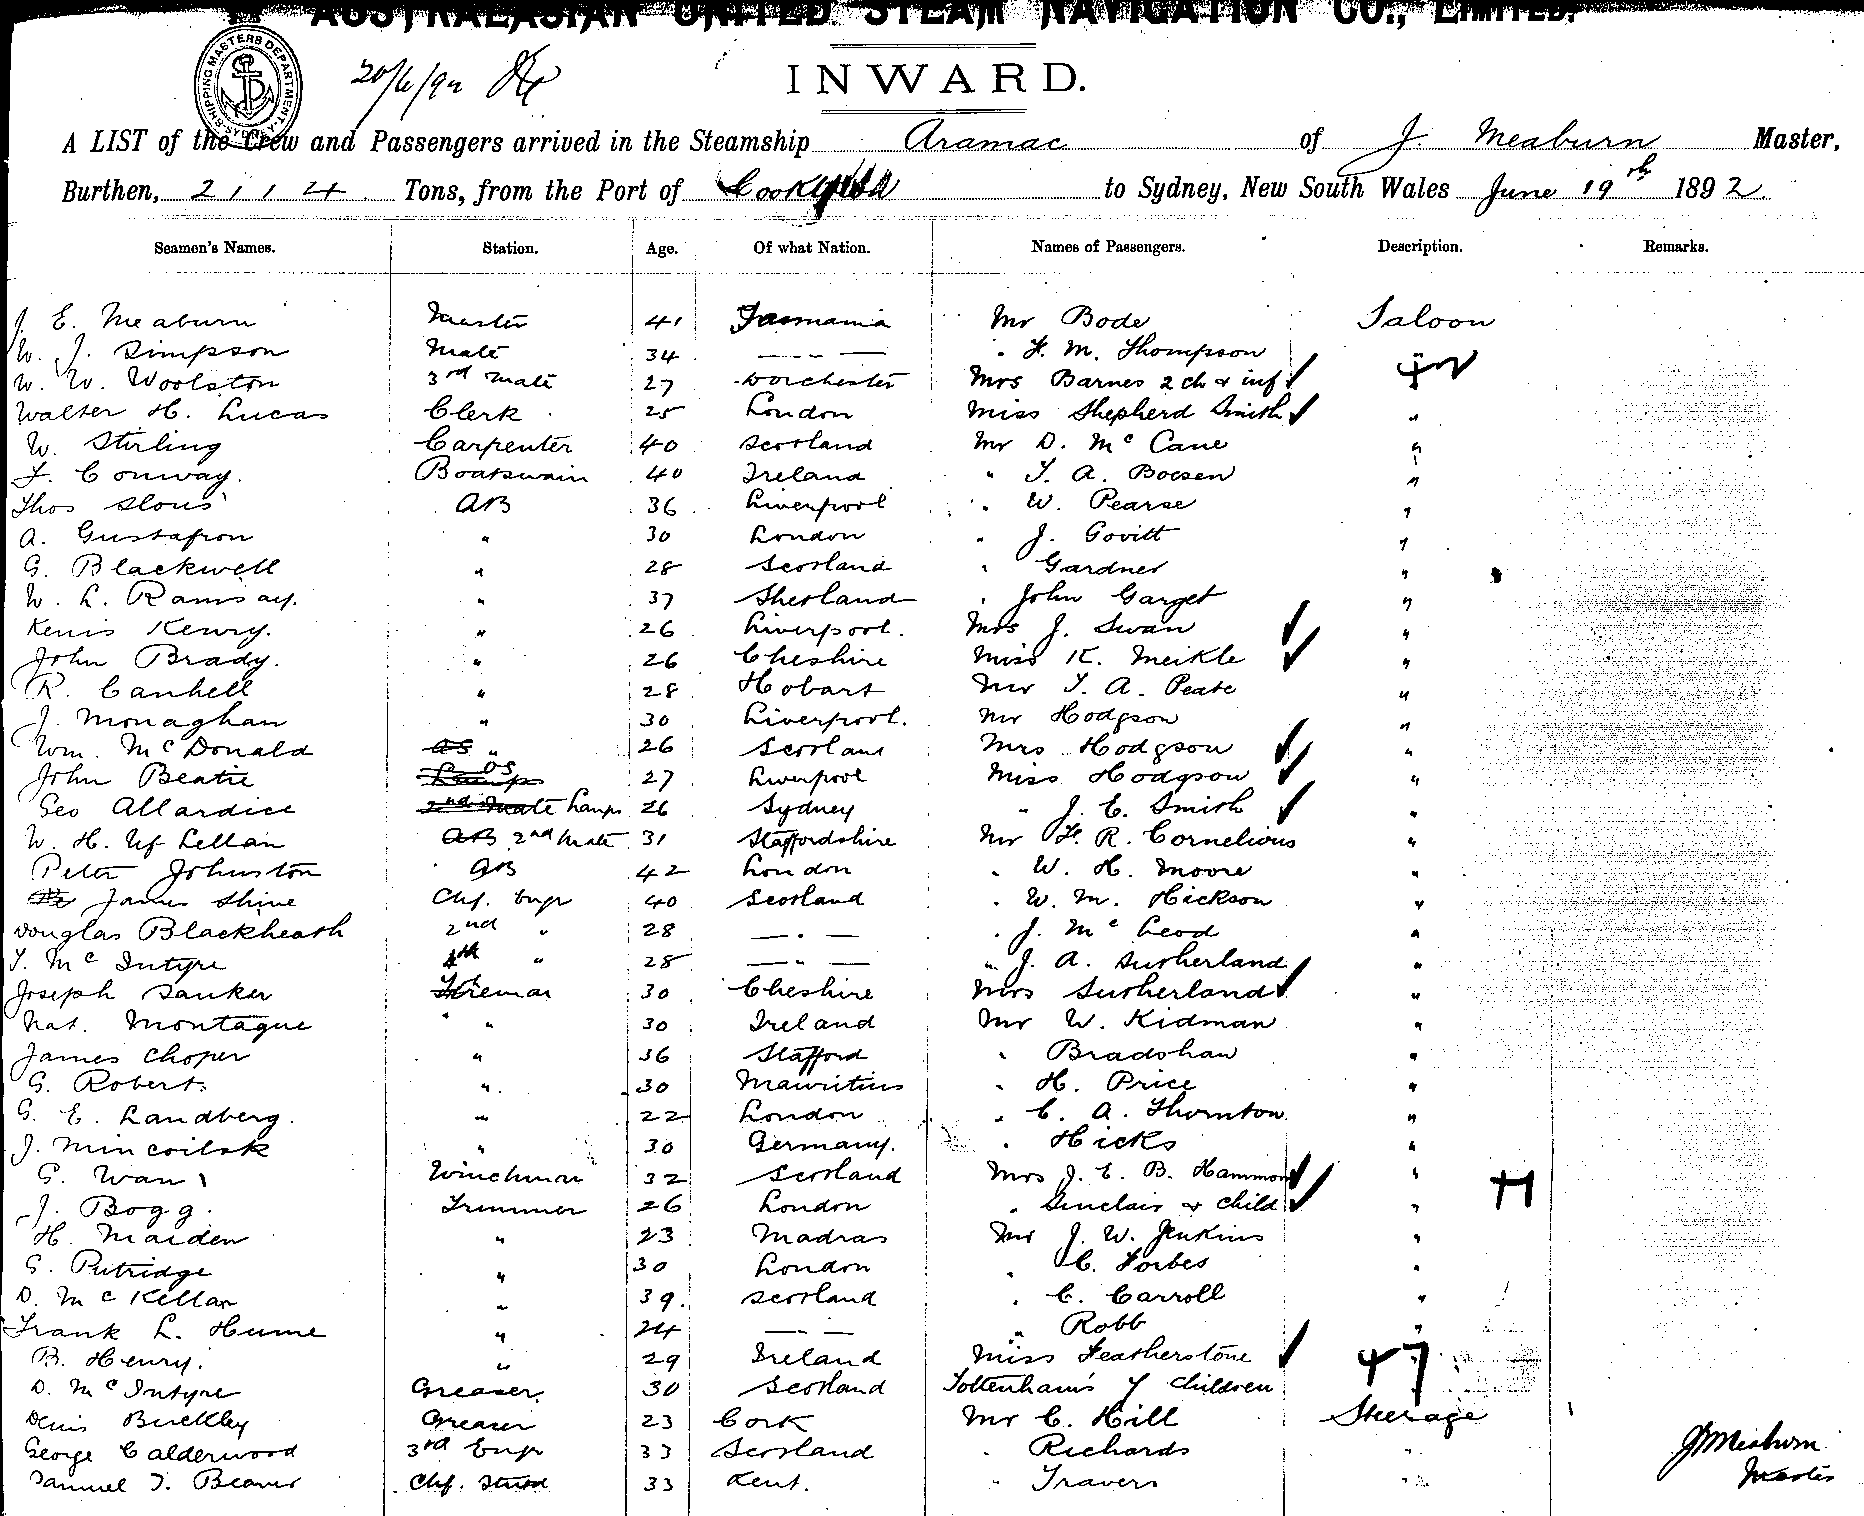 AUSTRALASIAN UNITED STEAM NAVIGATION CO., LIMITED.
SHIPPING MASTERS DEPARTMENT SYDNEY
20/6/92
INWARD.
A LIST of the Crew and Passengers arrived in the Steamship Aramac of J. Meaburn Master,
Burthen, 2114 Tons, from the Port of to Sydney, New South Wales June 19th 1892.
Seamen's Names. Station. Age. Of what Nation. Names of Passengers. Description. Remarks.
J. E. Meaburn Master 41 Tasmania Mr Bode Saloon
W. J. Simpson Mate 34 — " — " F. M. Thompson "
W. W. Woolston 3rd Mate 27 Dorchester Mrs Barnes 2 ch & inf
Walter H. Lucas Clerk 25 London Miss Shepherd Smith "
W. Stirling Carpenter 40 Scotland Mr D. McCane "
F. Conway. Boatswain 40 Ireland " T. A. Boesen "
Thos AB 36 Liverpool " W. Pearse "
A. Gustafson " 30 London " J. Govitt "
G. Blackwell " 28 Scotland " Gardner "
W. L. Ramsay. " 37 Shetland " John Garget "
Kenry. " 26 Liverpool. Mrs J. Swan "
John Brady. " 26 Cheshire Miss K. Meikle "
R. Canhell " 28 Hobart Mr T. A. Peate "
J. Monaghan " 30 Liverpool. Mr Hodgson "
Wm. McDonald " 26 Scotland Mrs Hodgson "
John Beatie OS 27 Liverpool Miss Hodgson "
Geo Allardice Lamps 26 Sydney " J. E. Smith "
W. H. 2nd Mate 31 Staffordshire Mr F. R. Cornelious "
Peter Johnston AB 42 London " W. H. Moore "
James Shine Chf. Engr 40 Scotland " W. M. Hickson "
Douglas Blackheath 2nd " 28 — " — " J. McLeod "
T. McIntyre 4th " 28 — " — " J. A. Sutherland "
Joseph Sanker Fireman 30 Cheshire Mrs Sutherland "
Nat. Montague " 30 Ireland Mr W. Kidman "
James Choper " 36 Stafford " Bradshaw "
G. Roberts " 30 Mauritius " H. Price "
G. E. Landberg. " 22 London " C. A. Thornton "
J. " 30 Germany. " Hicks "
G. Wan Winchman 32 Scotland Mrs J. E. B. Hammond "
J. Bogg. Trimmer 26 London " Sinclair & child "
H. Maiden " 23 Madras Mr J. W. Jenkins "
G. Putridge " 30 London " C. Forbes "
D. McKellar " 39. Scotland " C. Carroll "
Frank L. Hume " 24 — " — " Robb "
B. Henry. " 29 Ireland Miss Featherstone
D. McIntyre Greaser. 30 Scotland Tottenham's 7 children
Denis Buckley Greaser 23 Cork Mr C. Hill Steerage
George Calderwood 3rd Engr 33 Scotland " Richards "
Samuel T. Beaver Chf. Stwd 33 Kent. " Travers "
J Meaburn
Master